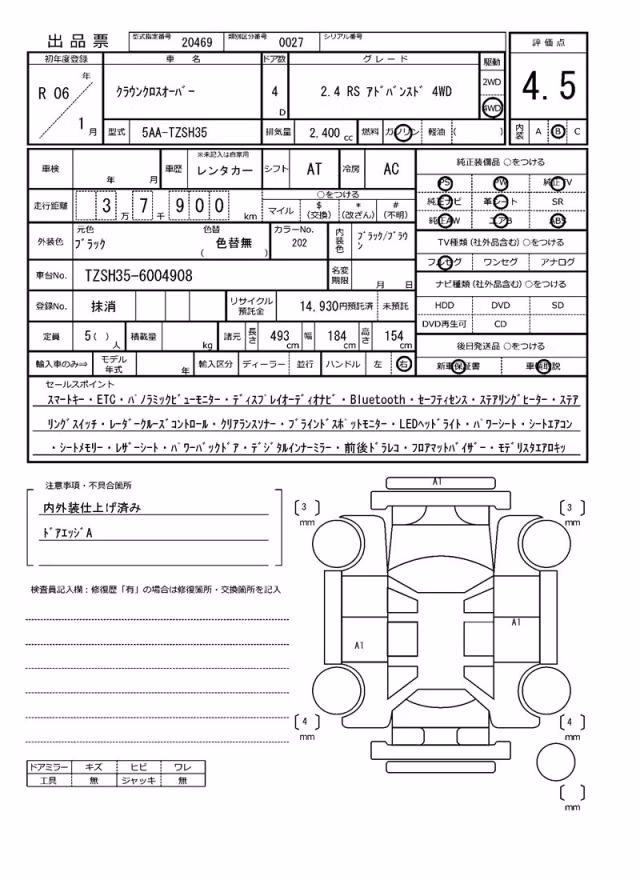 出品票 型式指定番号 20469 類別区分番号 0027 シリアル番号
初年度登録 車名 ドア数 グレード 駆動 評価点
R 06 年 1 月 クラウンクロスオーバー 4 D 2.4 RS アドバンスド 4WD 2WD 4WD 4.5
型式 5AA-TZSH35 排気量 2,400 cc 燃料 ガソリン 軽油 ( ) 内装 A B C
車検 年 月 車歴 ※未記入は自家用 レンタカー シフト AT 冷房 AC
走行距離 3 万 7 千 9 0 0 km ○をつける マイル $ (交換) * (改ざん) # (不明)
外装色 元色 ブラック 色替 色替無 ( ) カラーNo. 202 内装色 ブラック/ブラウン
車台No. TZSH35-6004908 名変期限 月 日
登録No. 抹消 リサイクル預託金 14,930円預託済 未預託
定員 5( ) 人 積載量 kg 諸元 長さ 493 cm 幅 184 cm 高さ 154 cm
輸入車のみ⇒ モデル年式 年 輸入区分 ディーラー 並行 ハンドル 左 右
純正装備品 ○をつける
PS PW 純正TV
純正ナビ 革シート SR
純正AW エアB ABS
TV種類(社外品含む) ○をつける
フルセグ ワンセグ アナログ
ナビ種類(社外品含む) ○をつける
HDD DVD SD
DVD再生可 CD
後日発送品 ○をつける
新車保証書 車輌取説
セールスポイント
スマートキー・ETC・パノラミックビューモニター・ディスプレイオーディオナビ・Bluetooth・セーフティセンス・ステアリングヒーター・ステア
リングスイッチ・レーダークルーズコントロール・クリアランスソナー・ブラインドスポットモニター・LEDヘッドライト・パワーシート・シートエアコン
・シートメモリー・レザーシート・パワーバックドア・デジタルインナーミラー・前後ドラレコ・フロアマットバイザー・モデリスタエアロキッ
注意事項・不具合箇所
内外装仕上げ済み
ドアエッジA
検査員記入欄:修復歴「有」の場合は修復箇所・交換箇所を記入
ドアミラー キズ ヒビ ワレ
工具 無 ジャッキ 無
A1
[ 3 ] mm [ 3 ] mm
A1
A1
[ 4 ] mm [ 4 ] mm
[ ] mm